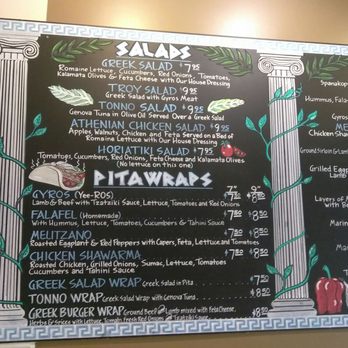 SALADS
GREEK SALAD $7.25
Romaine Lettuce, Cucumbers, Red Onions, Tomatoes,
Kalamata Olives & Feta Cheese with Our House Dressing
TROY SALAD $9.25
Greek Salad with Gyros Meat
TONNO SALAD $9.25
Genova Tuna in Olive Oil Served Over a Greek Salad
ATHENIAN CHICKEN SALAD $9.25
Apples, Walnuts, Chicken and Feta Served on a Bed of
Romaine Lettuce with Our House Dressing
HORIATIKI SALAD $7.25
Tomatoes, Cucumbers, Red Onions, Feta Cheese and Kalamata Olives
(No lettuce on this one)
PITAWRAPS
7" 9"
GYROS (Yee-ROS) $7 $8.50
Lamb & Beef with Tzatziki Sauce, Lettuce, Tomatoes and Red Onions
FALAFEL (Homemade) $7 $8.50
With Hummus, Lettuce, Tomatoes, Cucumbers & Tahini Sauce
MELITZANO $7 $8.50
Roasted Eggplant & Red Peppers with Capers, Feta, Lettuce and Tomatoes
CHICKEN SHAWARMA $7.50
Roasted Chicken, Grilled Onions, Sumac, Lettuce, Tomatoes
Cucumbers and Tahini Sauce
GREEK SALAD WRAP Greek Salad in Pita $7.50
TONNO WRAP Greek Salad Wrap with Genova Tuna $8.50
GREEK BURGER WRAP Ground Beef & Lamb mixed with Feta Cheese,
Herbs & Spices with Lettuce, Tomato, Fresh Red Onions & Tzatziki Sauce $8.50
Spanakop
Hummus, Fala
Grilled Egg
Lamb
Layers of
with Be